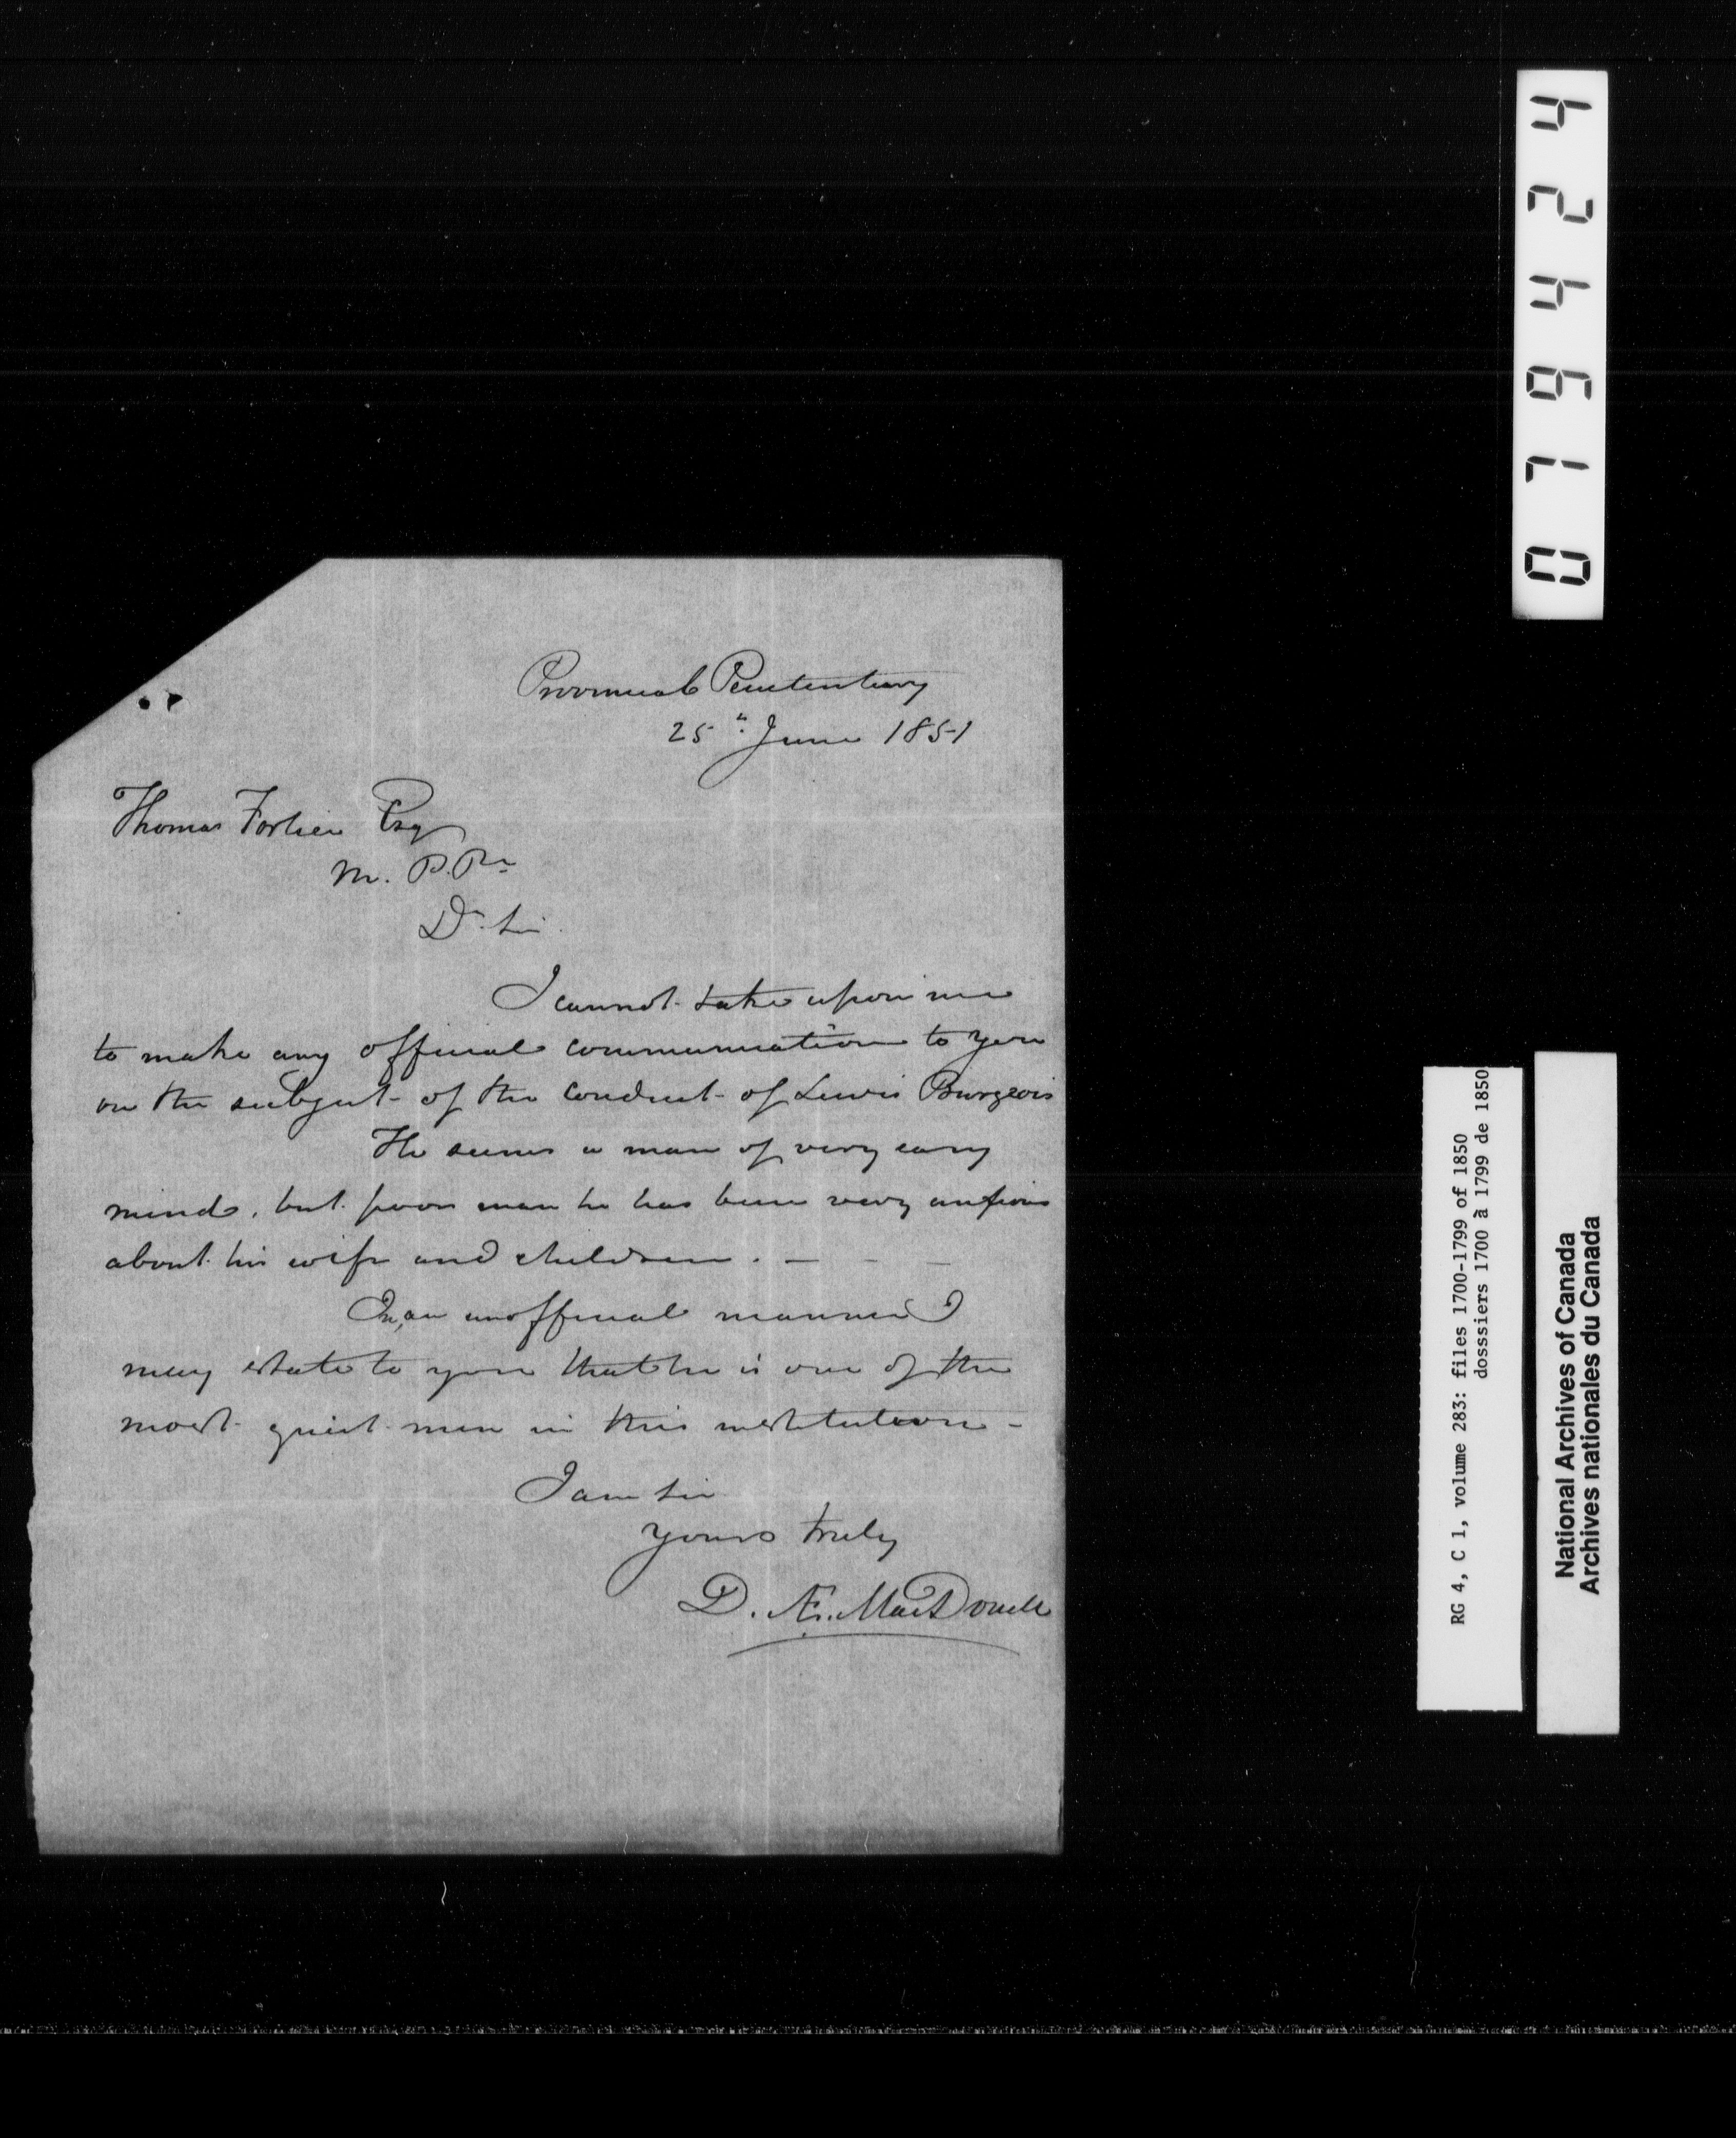 Provincial Penitentiary
25th June 1851
Thomas Fortier Esq
M. P. P.
Dr Sir
I cannot take upon me
to make any official communication to you
on the subject of the conduct of Lewis Burgeois
He seems a man of very easy
mind, but poor man he has been very anxious
about his wife and children. — - —
In an unofficial manner I
may state to you that he is one of the
most quiet men in this institution -
I am Sir
Yours truly
D. Æ. MacDonell
074424
RG 4, C 1, volume 283: files 1700-1799 of 1850
dosssiers 1700 à 1799 de 1850
National Archives of Canada
Archives nationales du Canada